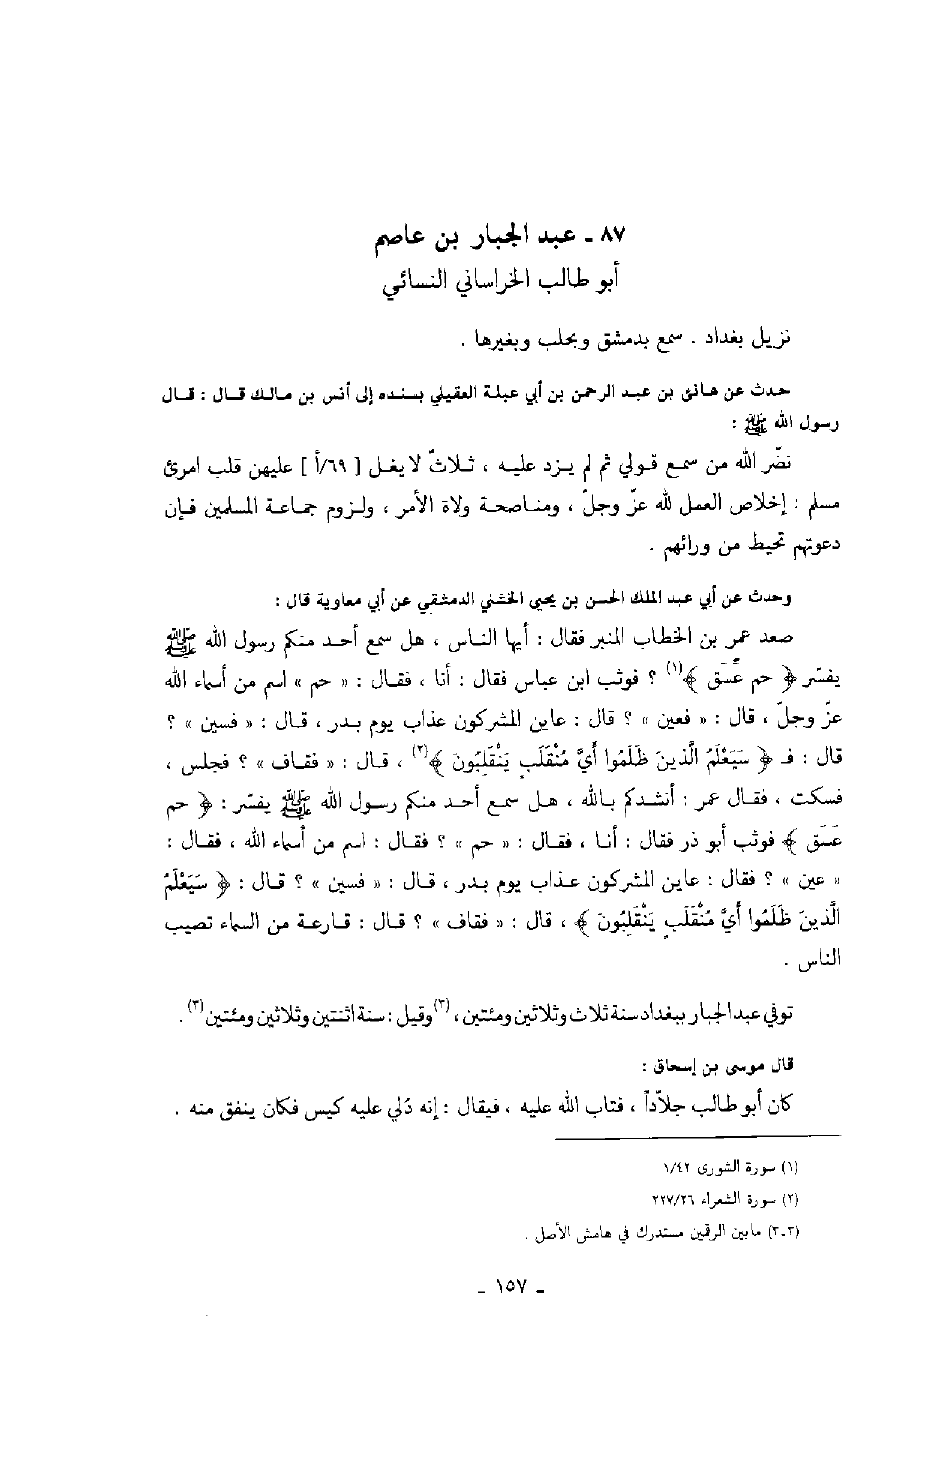 ٨٧ ـ عبد الجبار بن عاصم
أبو طالب الخراساني النسائي
نزيل بغداد . سمع بدمشق وبحلب وبغيرها .
حدث عن هانئ بن عبد الرحمن بن أبي عبلة العقيلي بسنده إلى أنس بن مالك قال : قال
رسول الله ﷺ :
نضّر الله من سمع قولي ثم لم يزد عليه ، ثلاثٌ لا يغل [ ٦٩/أ ] عليهن قلب امرئ
مسلم : إخلاص العمل لله عزّ وجلّ ، ومناصحة ولاة الأمر ، ولزوم جماعة المسلمين فإن
دعوتهم تحيط من ورائهم .
وحدث عن أبي عبد الملك الحسن بن يحيى الخشني الدمشقي عن أبي معاوية قال :
صعد عمر بن الخطاب المنبر فقال : أيها الناس ، هل سمع أحد منكم رسول الله ﷺ
يفسّر ﴿ حم عَسَق ﴾(١) ؟ فوثب ابن عباس فقال : أنا ، فقال : « حم » اسم من أسماء الله
عزّ وجلّ ، قال : « فعين » ؟ قال : عاين المشركون عذاب يوم بدر ، قال : « فسين » ؟
قال : فـ ﴿ سَيَعْلَمُ الَّذينَ ظَلَمُوا أيَّ مُنْقَلَبٍ يَنْقَلِبُونَ ﴾(٢) ، قال : « فقاف » ؟ فجلس ،
فسكت ، فقال عمر : أنشدكم بالله ، هل سمع أحد منكم رسول الله ﷺ يفسّر : ﴿ حم
عَسَق ﴾ فوثب أبو ذر فقال : أنا ، فقال : « حم » ؟ فقال : اسم من أسماء الله ، فقال :
« عين » ؟ فقال : عاين المشركون عذاب يوم بدر ، قال : « فسين » ؟ قال : ﴿ سَيَعْلَمُ
الَّذينَ ظَلَمُوا أيَّ مُنْقَلَبٍ يَنْقَلِبُونَ ﴾ ، قال : « فقاف » ؟ قال : قارعة من السماء تصيب
الناس .
توفي عبد الجبار ببغداد سنة ثلاث وثلاثين ومئتين ، (٣)وقيل : سنة اثنتين وثلاثين ومئتين(٣) .
قال موسى بن إسحاق :
كان أبو طالب جلاّداً ، فتاب الله عليه ، فيقال : إنه دُلي عليه كيس فكان ينفق منه .
(١) سورة الشورى ١/٤٢
(٢) سورة الشعراء ٢٢٧/٢٦
(٣-٣) مابين الرقمين مستدرك في هامش الأصل .
ـ ١٥٧ ـ